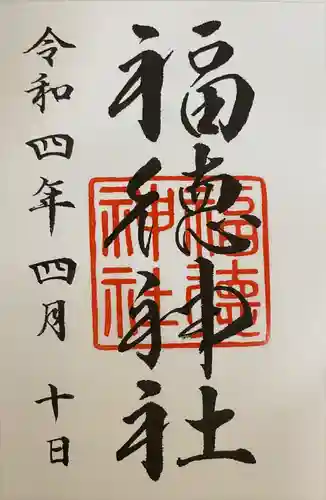 福徳神社
令和四年四月十日
福徳神社